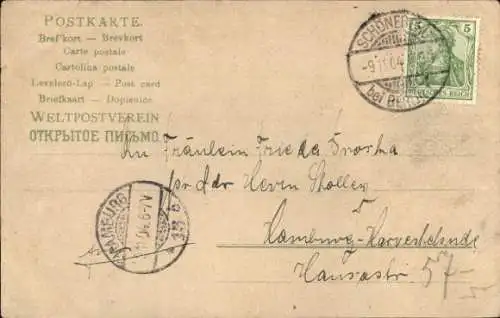 POSTKARTE.
Brefkort — Brevkort
Carte postale
Cartolina postale
Levelező-Lap — Post card
Briefkaart — Dopisnice
WELTPOSTVEREIN
ОТКРЫТОЕ ПИСЬМО.
SCHÖNEBERG
-9.11.04
bei BERLIN
5
DEUTSCHES REICH
An Fräulein Frieda
pr Adr Herrn
Hamburg-Harvestehude
Hansastr 57
HAMBURG
11.04.6-7V